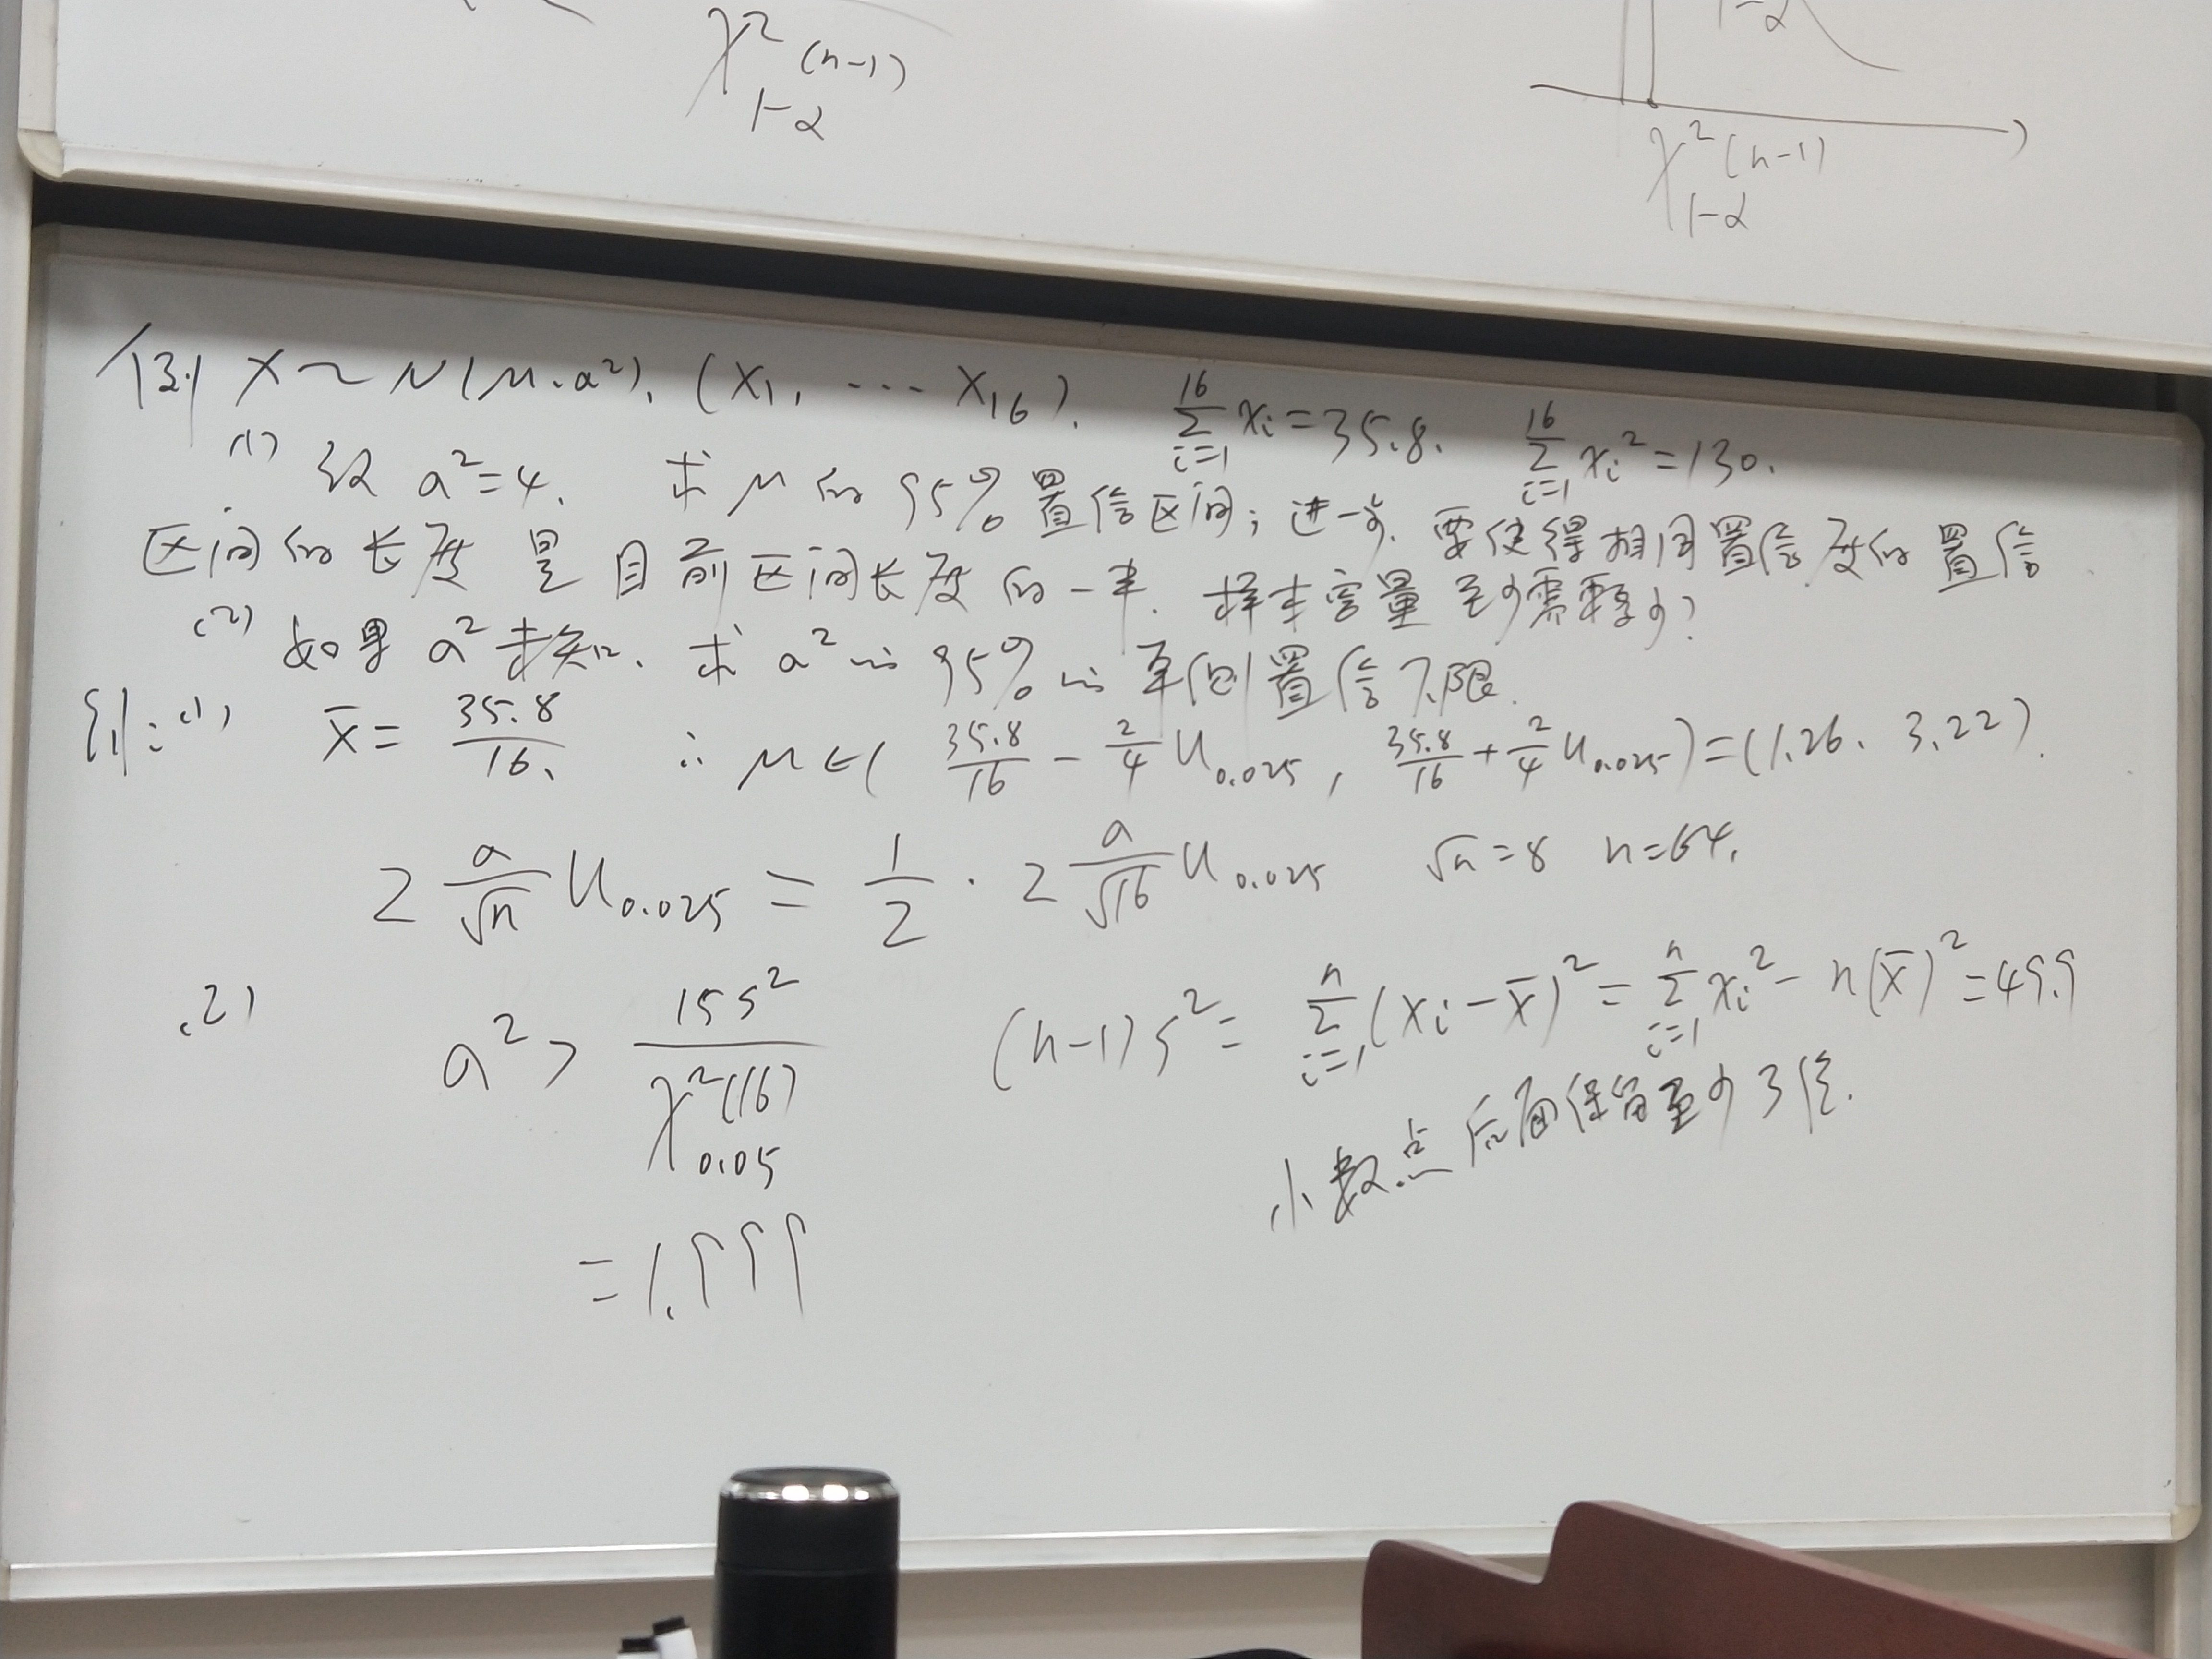 χ²₁₋α(n-1)
1-α
χ²₁₋α(n-1)
例 X～N(μ, a²). (X₁, ⋯ X₁₆). ∑ᵢ₌₁¹⁶ xᵢ=35.8. ∑ᵢ₌₁¹⁶ xᵢ²=130.
(1) 设 a²=4. 求 μ 的 95% 置信区间; 进一步. 要使得相同置信度的置信
区间的长度是目前区间长度的一半. 样本容量至少需要多少?
(2) 如果 a² 未知. 求 a² 的 95% 的单侧置信下限.
解:(1) x̄ = 35.8/16. ∴ μ∈( 35.8/16 - 2/4 U₀.₀₂₅, 35.8/16 + 2/4 U₀.₀₂₅)=(1.26. 3.22).
2 a/√n U₀.₀₂₅ = 1/2 · 2 a/√16 U₀.₀₂₅ √n=8 n=64.
(2) a² > 15S²/χ²₀.₀₅(16) (n-1)S² = ∑ᵢ₌₁ⁿ(xᵢ-x̄)² = ∑ᵢ₌₁ⁿ xᵢ² - n(x̄)² = 49.9
小数点后面保留至少3位.
=1.999